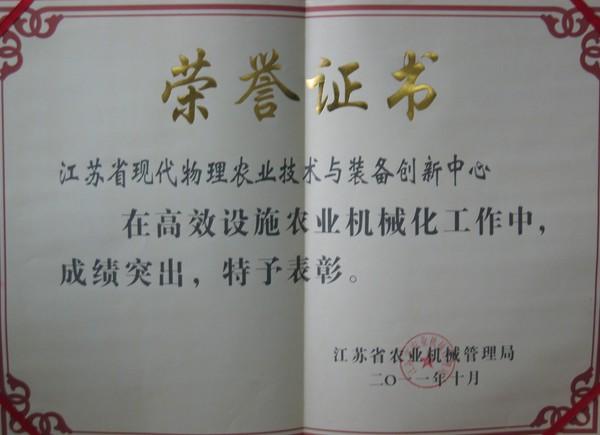 荣誉证书
江苏省现代物理农业技术与装备创新中心
在高效设施农业机械化工作中，
成绩突出，特予表彰。
江苏省农业机械管理局
二〇一一年十月